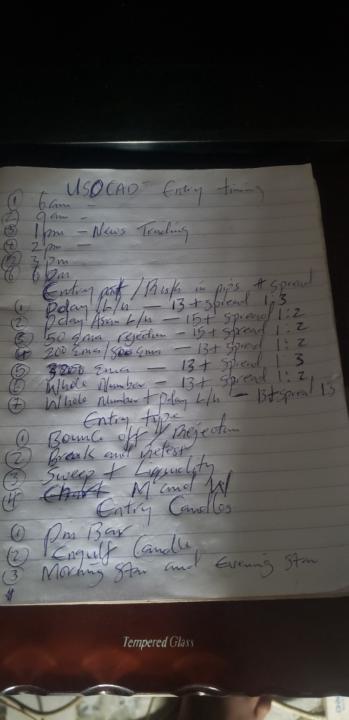 USDCAD Entry timing
① 6am -
② 9am -
③ 1pm - News Trading
④ 2pm -
⑤ 3pm
⑥ 6pm
Entry /Risk in pips + spread
① Pday L/H - 13 + spread 1:3
② Pday/Asian L/H - 15 + spread 1:2
③ 50 Ema rejection - 15 + spread 1:2
④ 200 Ema/ Ema - 13 + spread 1:2
⑤ Ema - 13 + spread 1:3
⑥ Whole Number - 13 + spread 1:2
⑦ Whole Number + Pday L/H - 13 + spread 1:3
Entry type
① Bounce off / Rejection
② Break and retest
③ Sweep + Liquidity
④ M and W
Entry Candles
① Pin Bar
② Engulf Candle
③ Morning Star and Evening Star
Tempered Glass